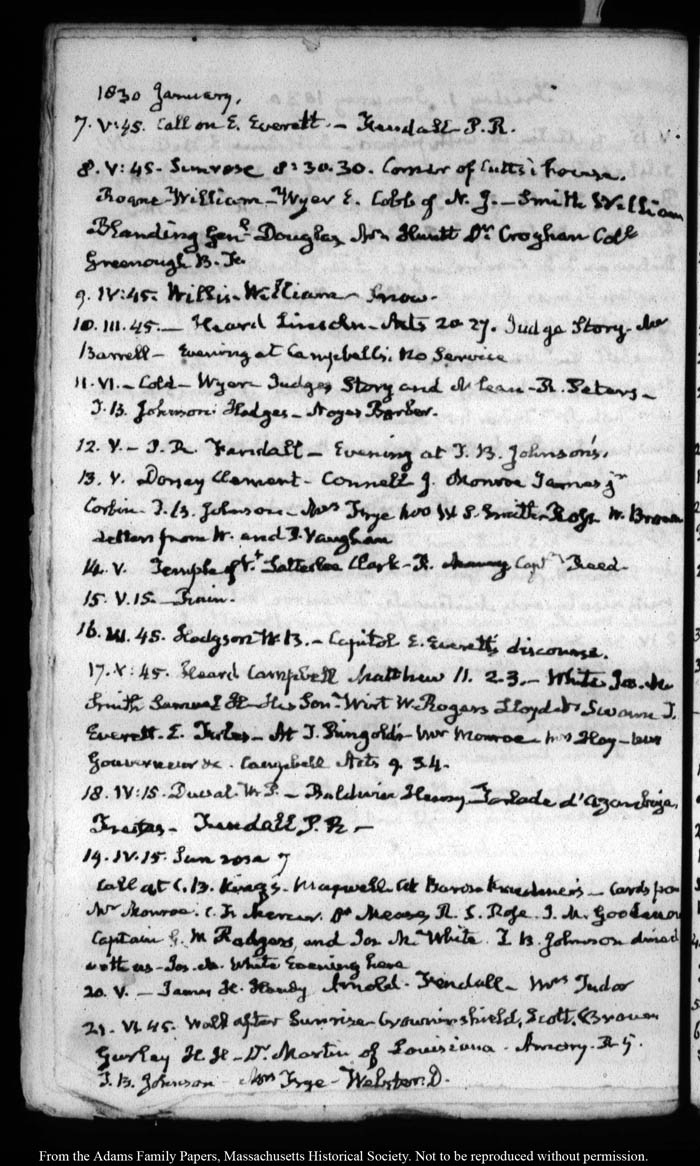 1830 January.
7. V:45. Call on E. Everett. – Fendall P. R.
8. V:45. Sunrose 8:30.30. Corner of Cutts's house.
Roane William – Wyer E. Cobb of N. J. – Smith William
Blanding Genl. Douglas Mrs Dr. Croghan Coll
Greenough B. F.
9. IV:45. Willis – William – Snow.
10. III.45. – Heard Lincoln – Acts 20 27. Judge Story. Mr
Barrell – Evening at Campbell's, no Service
11. VI. – Cold – Wyer Judges Story and McLean – R. Peters –
J. B. Johnson Hodges – Noyes Barber.
12. V. – P. R. Fendall – Evening at J. B. Johnson's.
13. V. Dorsey Clement – Connell J. Monroe James jr
Corbin J. B. Johnson – Mrs Frye two W. S. Smith W. Brown
Letters from W. and P. Vaughan
14. V. Temple of Vt. Satterlee Clark – R. Capt. Read.
15. V.15. Train.
16. III. 45. Hodgson W. B. – Capitol E. Everett's discourse.
17. X:45. Heard Campbell Matthew 11. 2.3. – White Jos. M.
Smith Samuel H – His Son. Wirt W. Rogers Lloyd Swann T.
Everett. E. – At T. Ringold's Mr Monroe – Mrs Hay – Mrs
Gouverneur &c. Campbell Acts 9. 34.
18. IV:15. Duval W. P. – Baldwin Henry Torlade d'Azambuja,
Freitas – Fendall P. R –
19. IV.15. Sun rose 7
Call at C. B. King's. Maxwell at Baron Krudener's – Cards from
Mr Monroe. C. F. Mercer. Dr Mease, R. S. Rose. J. M. Goodenow
Captain G. W Rodgers, and Jos. M. White. J. B. Johnson dined
with us – Jos. M. White Evening here
20. V. – James H. Handy Arnold. Fendall – Mrs Tudor
21. VI. 45. Walk after Sunrise – Crowninshield, Scott, Brown
Gurley H. H – Dr. Martin of Louisiana. Amory. R. G.
J. B. Johnson – Mrs Frye – Webster. D.
From the Adams Family Papers, Massachusetts Historical Society. Not to be reproduced without permission.